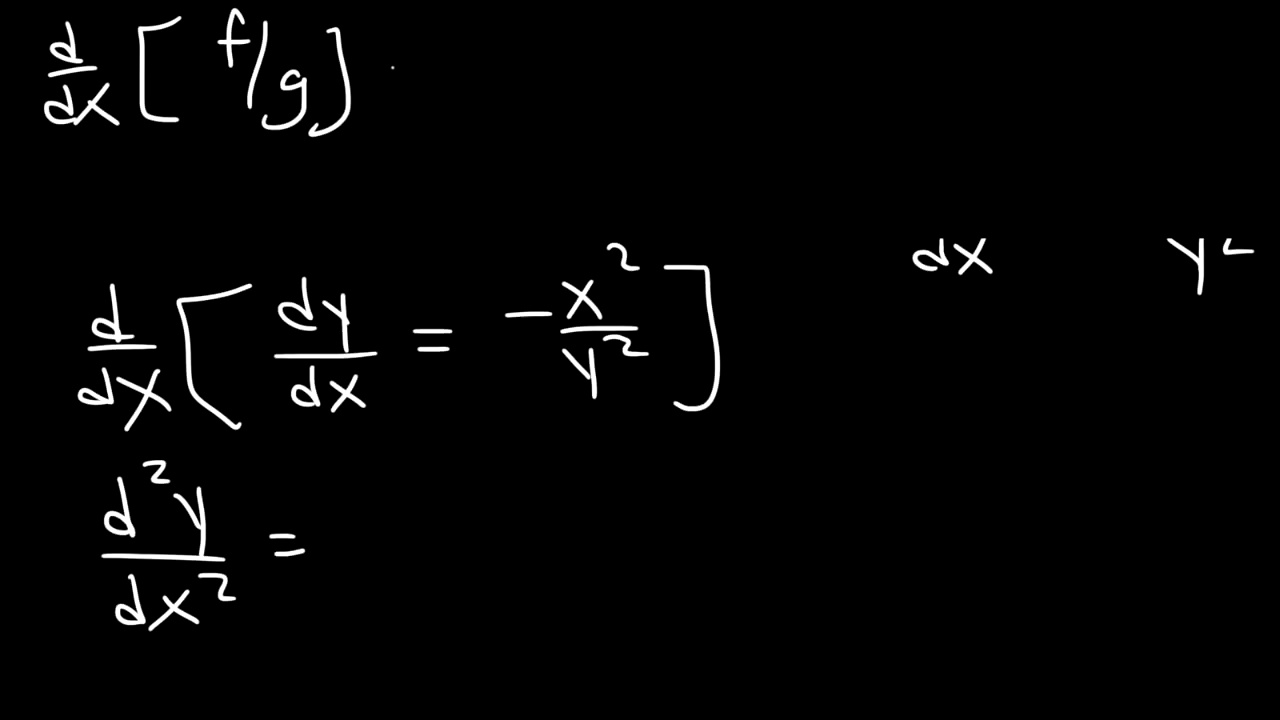 d/dx [ f/g ]
d/dx [ dy/dx = -x²/y² ]
dx
d²y/dx² =